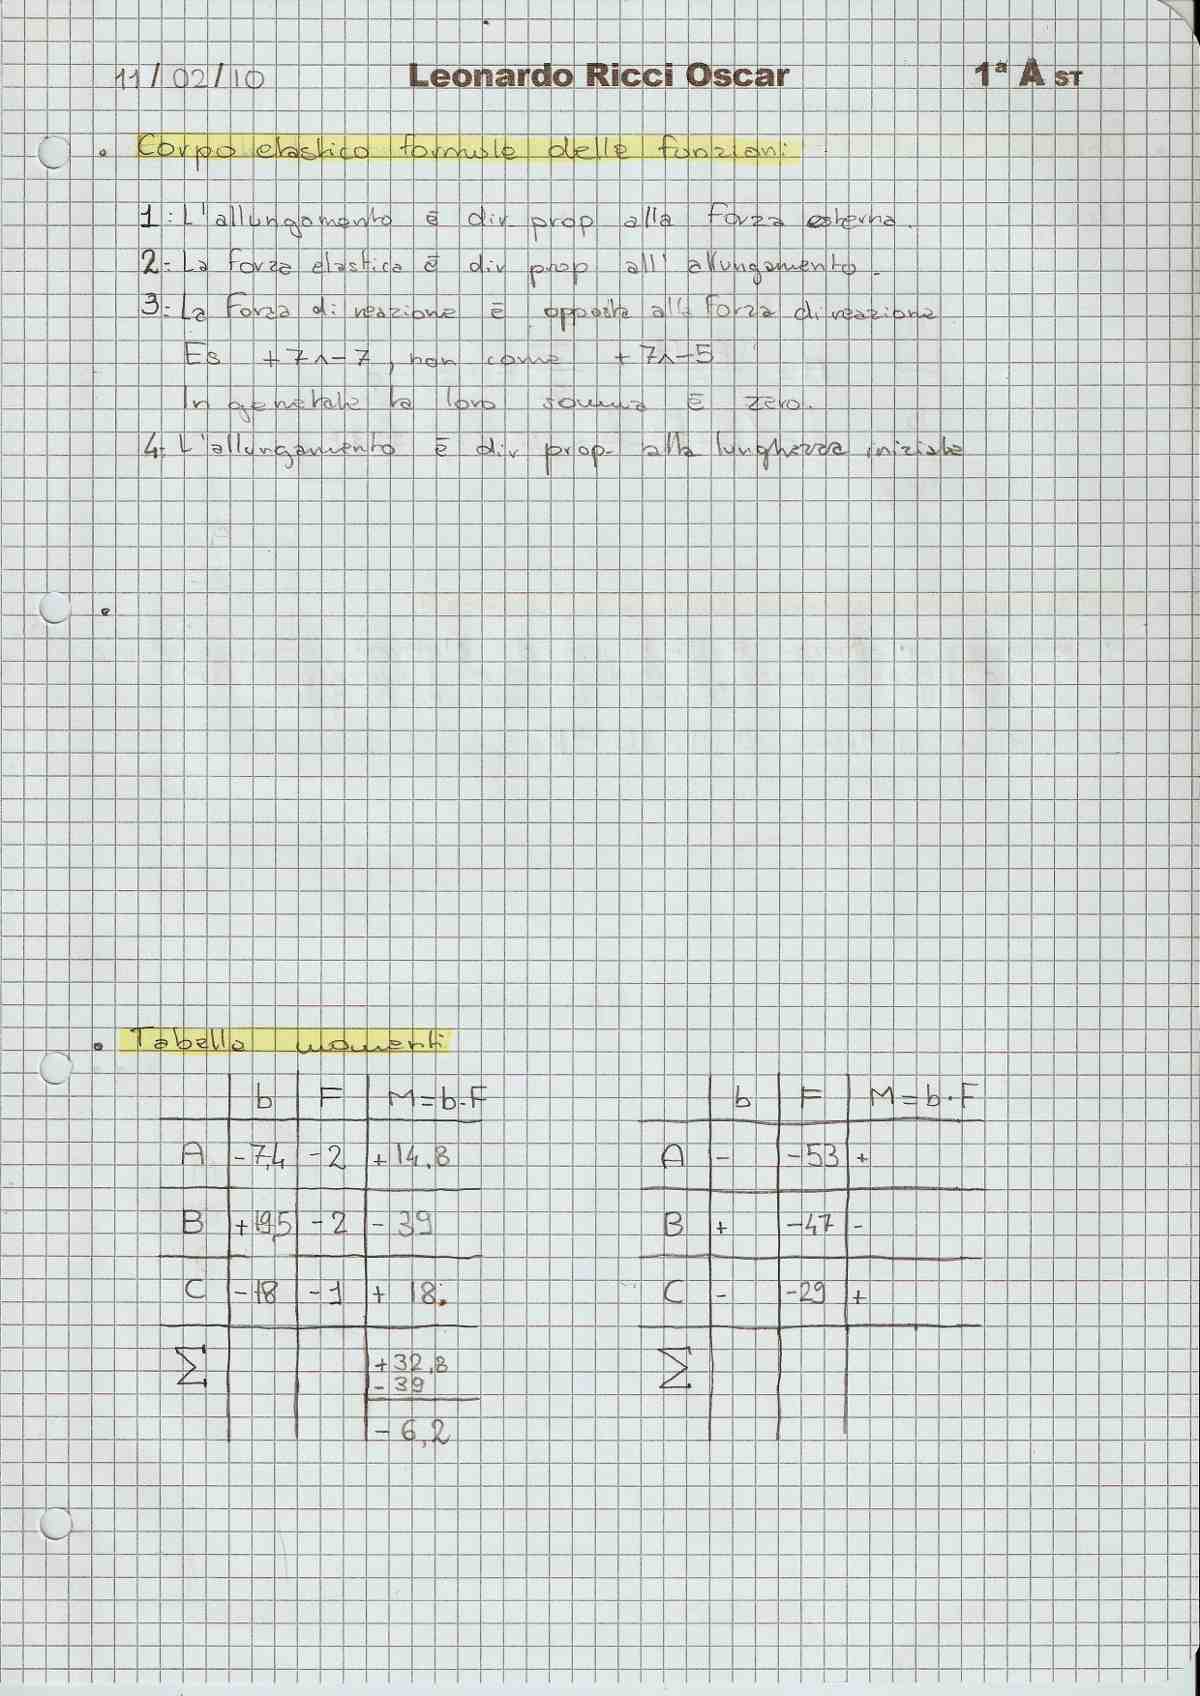 11/02/10 Leonardo Ricci Oscar 1ª A ST
• Corpo elastico formule delle funzioni
1: L'allungamento è dir prop alla forza esterna.
2: La forza elastica è dir prop all'allungamento.
3: La Forza di reazione è opposta alla Forza di reazione
Es +7∧-7, non come +7∧-5
In generale la loro somma è zero.
4: L'allungamento è dir prop. alla lunghezza iniziale
•
• Tabella momenti
b F M=b·F
A -7,4 -2 +14,8
B +19,5 -2 - 39
C -18 -1 + 18;
Σ +32,8
- 39
- 6,2
b F M=b·F
A - -53 +
B + -47 -
C - -29 +
Σ